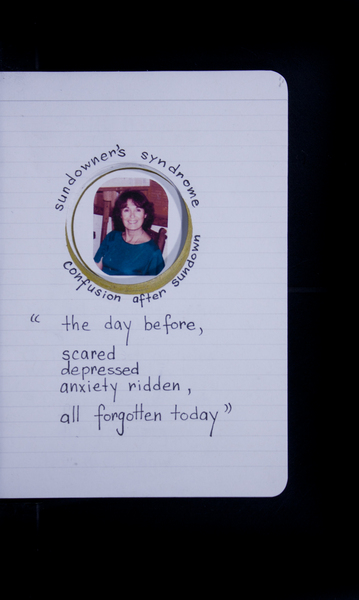 sundowner's syndrome
confusion after sundown
“ the day before,
scared
depressed
anxiety ridden ,
all forgotten today ”